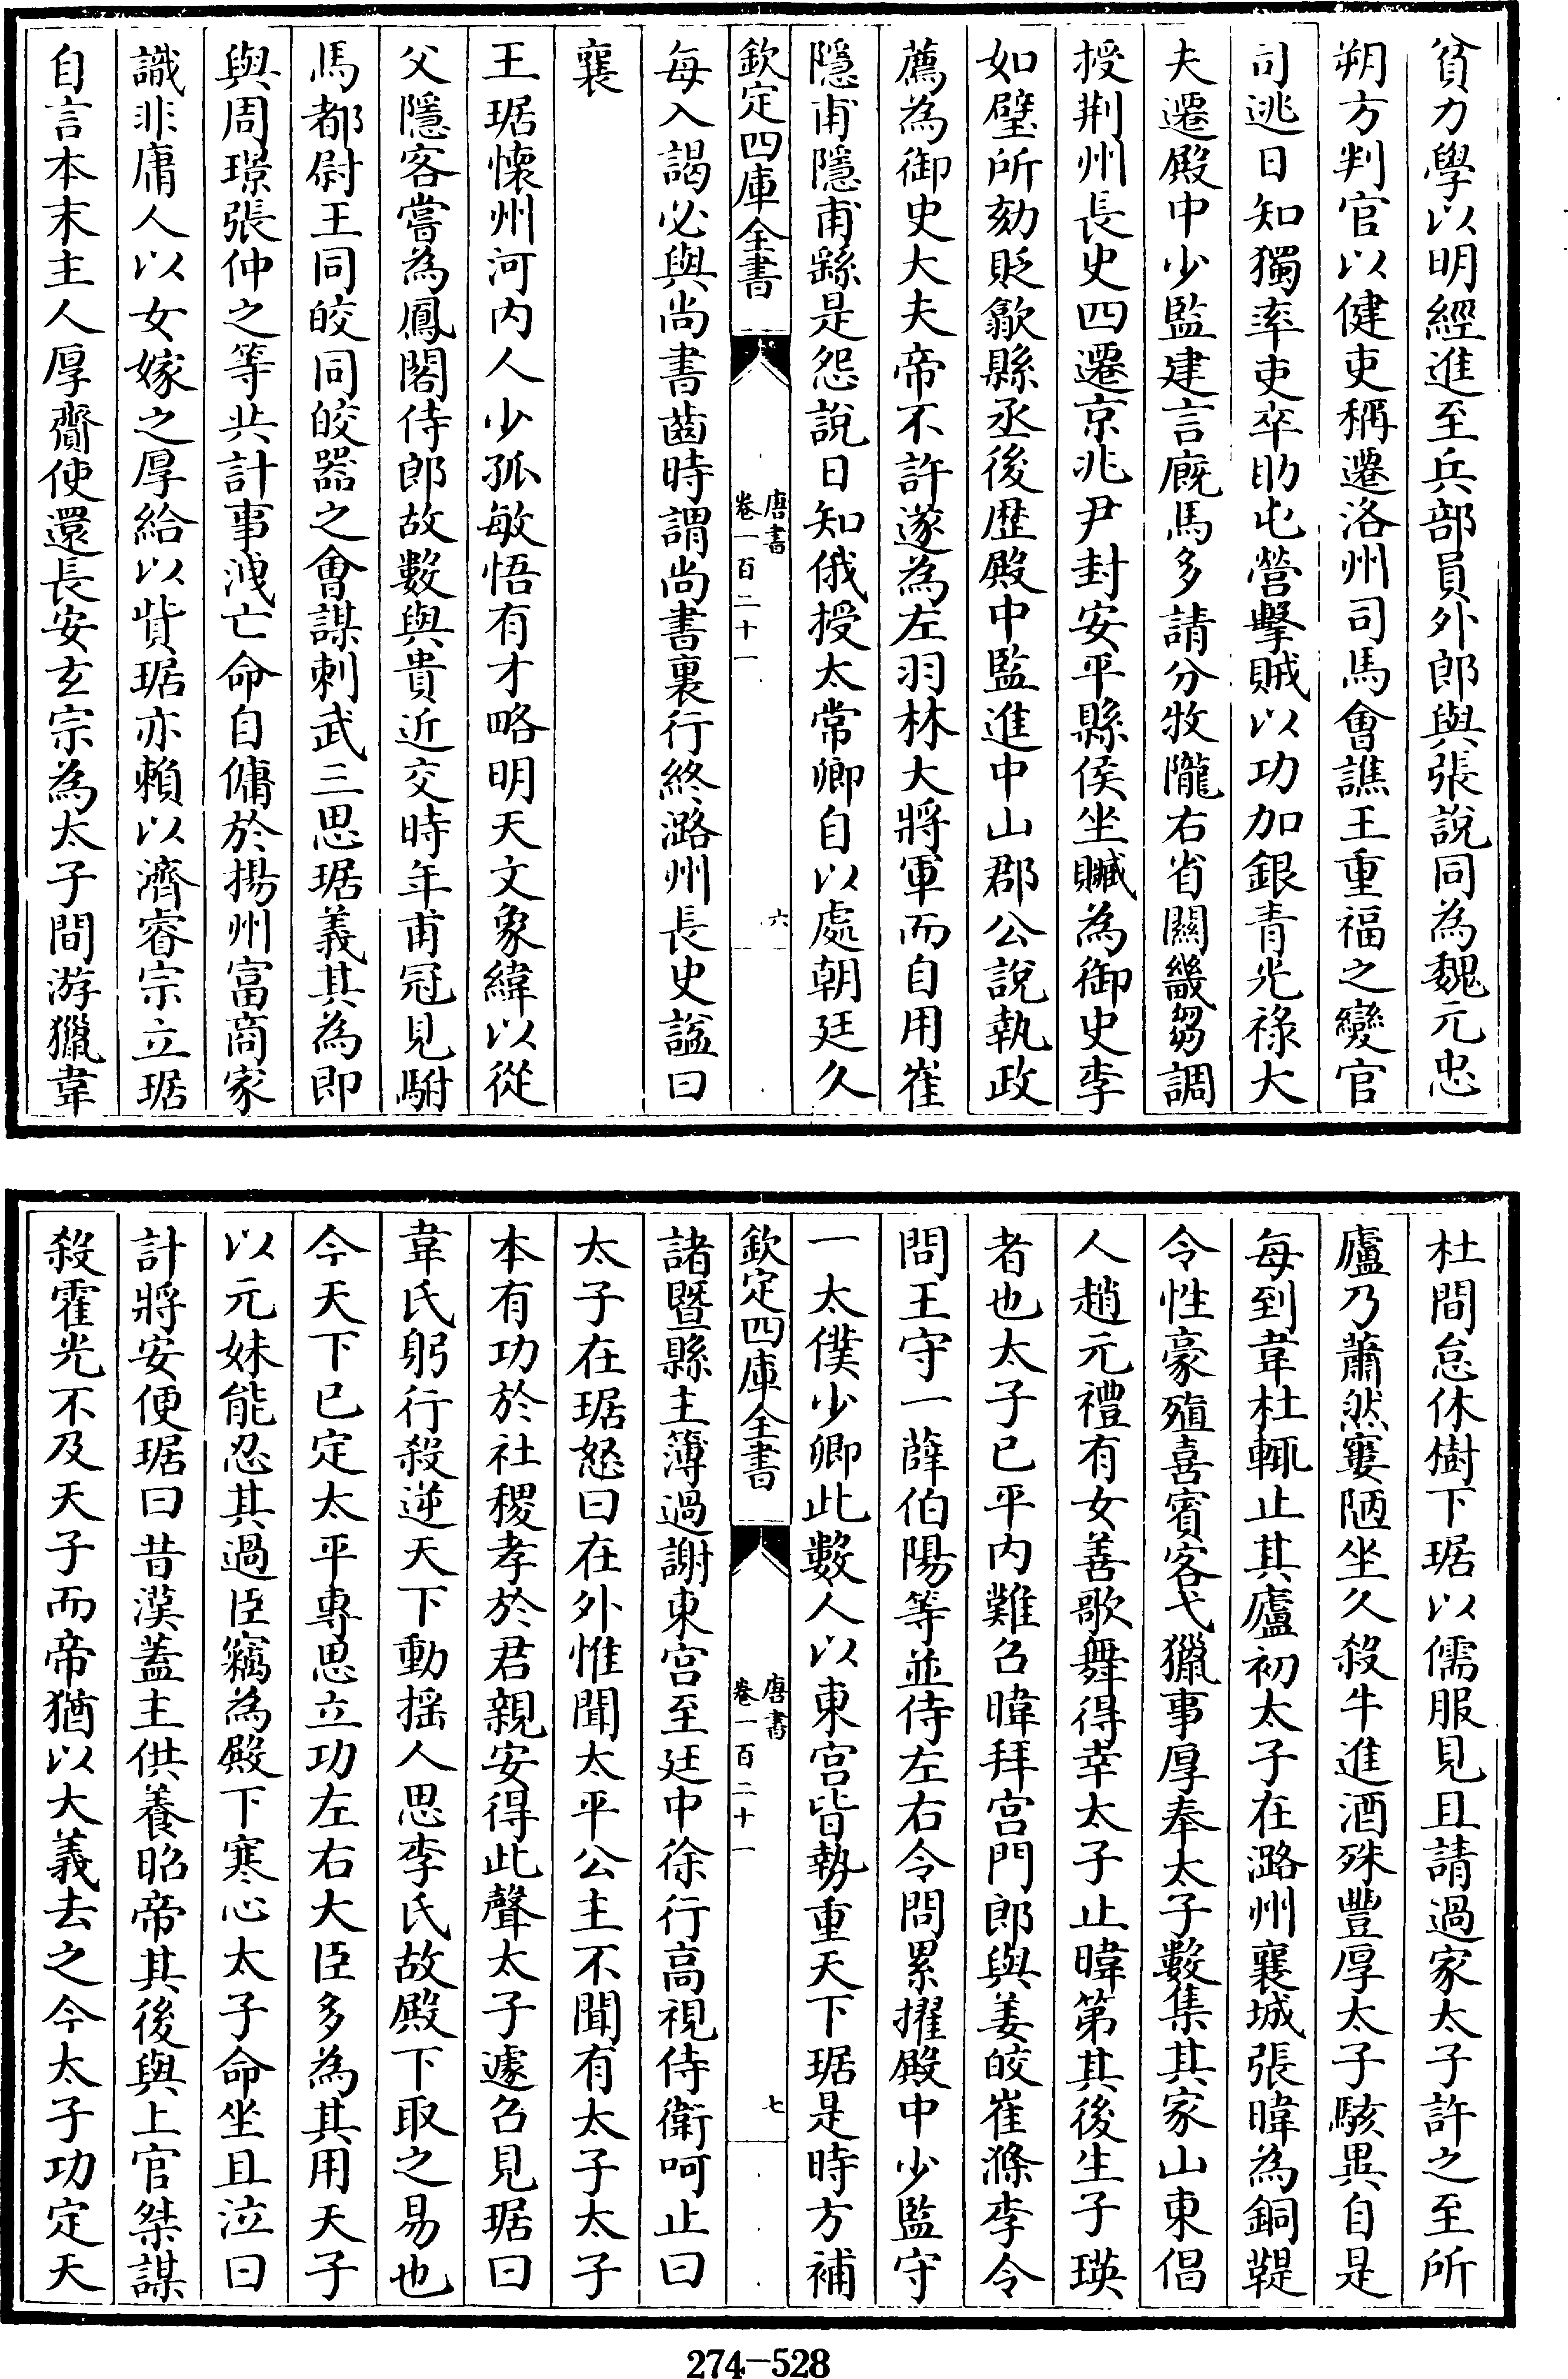 貧力學以明經進至兵部員外郎與張說同為魏元忠
朔方判官以健吏稱遷洛州司馬會譙王重福之變官
司逃日知獨率吏卒助屯營擊賊以功加銀青光祿大
夫遷殿中少監建言廐馬多請分牧隴右省關畿芻調
授荆州長史四遷京兆尹封安平縣侯坐贓為御史李
如璧所劾貶歙縣丞後歷殿中監進中山郡公說執政
薦為御史大夫帝不許遂為左羽林大將軍而自用崔
隱甫隱甫繇是怨說日知俄授太常卿自以處朝廷久
欽定四庫全書
唐書
卷一百二十一
六
每入謁必與尚書齒時謂尚書裏行終潞州長史諡曰
襄
王琚懷州河內人少孤敏悟有才略明天文象緯以從
父隱客嘗為鳳閣侍郎故數與貴近交時年甫冠見駙
馬都尉王同皎同皎器之會謀刺武三思琚義其為即
與周璟張仲之等共計事洩亡命自傭於揚州富商家
識非庸人以女嫁之厚給以貲琚亦賴以濟睿宗立琚
自言本末主人厚齎使還長安玄宗為太子間游獵韋
杜間怠休樹下琚以儒服見且請過家太子許之至所
廬乃蕭然窶陋坐久殺牛進酒殊豐厚太子駭異自是
每到韋杜輒止其廬初太子在潞州襄城張暐為銅鞮
令性豪殖喜賓客弋獵事厚奉太子數集其家山東倡
人趙元禮有女善歌舞得幸太子止暐第其後生子瑛
者也太子已平內難召暐拜宮門郎與姜皎崔滌李令
問王守一薛伯陽等並侍左右令問累擢殿中少監守
一太僕少卿此數人以東宮皆勢重天下琚是時方補
欽定四庫全書
唐書
卷一百二十一
七
諸暨縣主簿過謝東宮至廷中徐行高視侍衛呵止曰
太子在琚怒曰在外惟聞太平公主不聞有太子太子
本有功於社稷孝於君親安得此聲太子遽召見琚曰
韋氏躬行殺逆天下動搖人思李氏故殿下取之易也
今天下已定太平專思立功左右大臣多為其用天子
以元妹能忍其過臣竊為殿下寒心太子命坐且泣曰
計將安便琚曰昔漢蓋主供養昭帝其後與上官桀謀
殺霍光不及天子而帝猶以大義去之今太子功定天
274-528